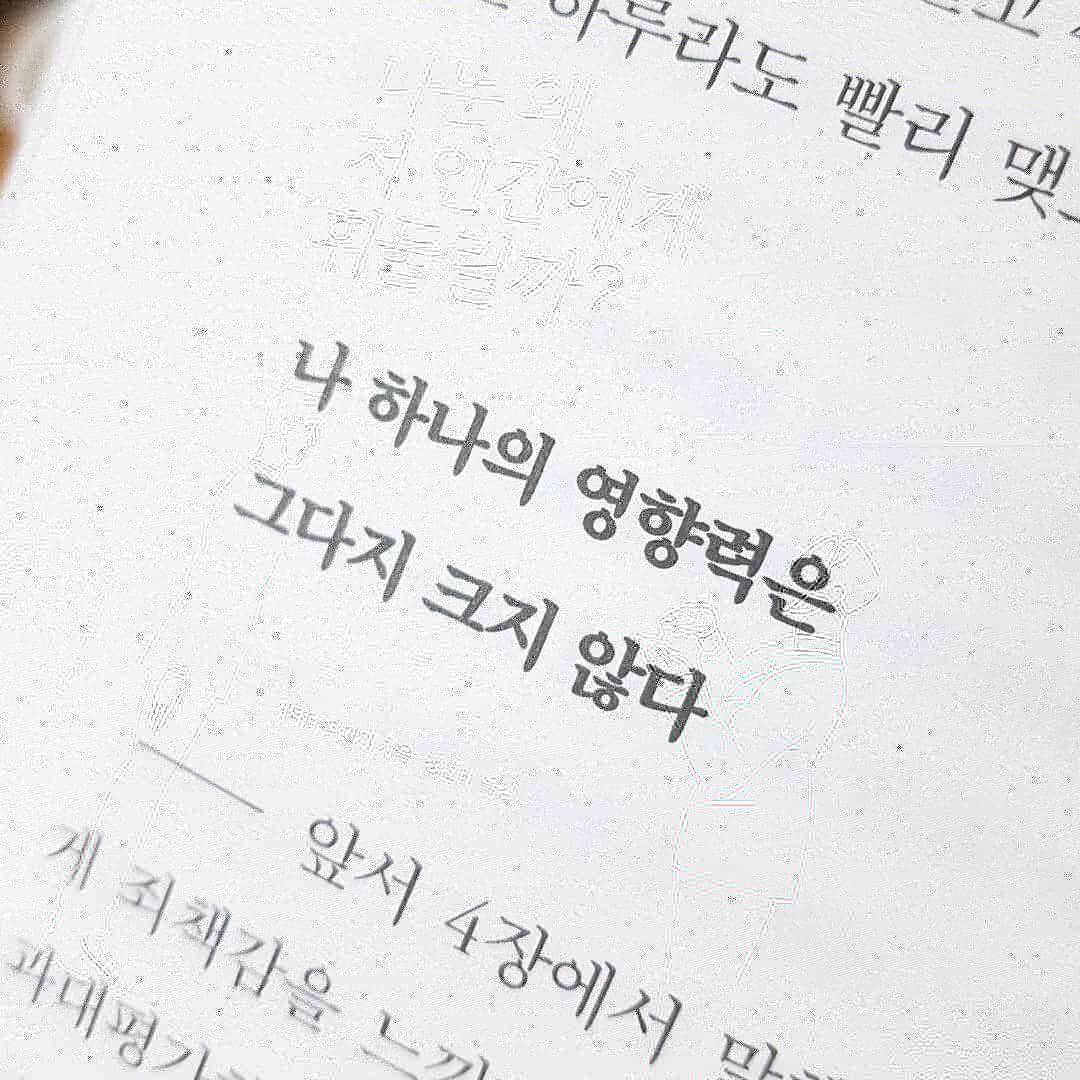 하루라도 빨리 맺
나는 왜
저 인간에게
휘둘릴까?
나 하나의 영향력은
그다지 크지 않다
앞서 4장에서
게 죄책감을 느끼
과대평가